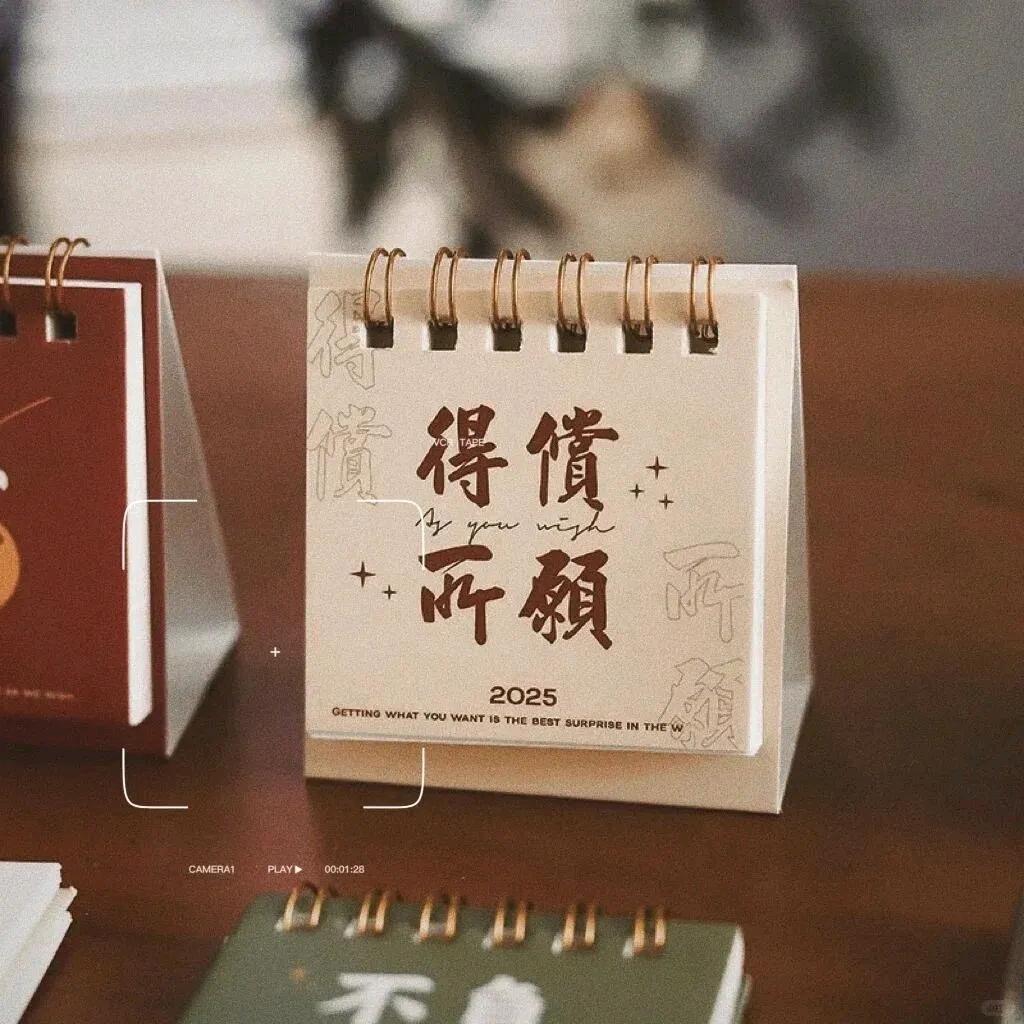 得
償
得償
VCR TAPE
As you wish
所願
所
願
2025
GETTING WHAT YOU WANT IS THE BEST SURPRISE IN THE W
CAMERA1 PLAY▶ 00:01:28
不負